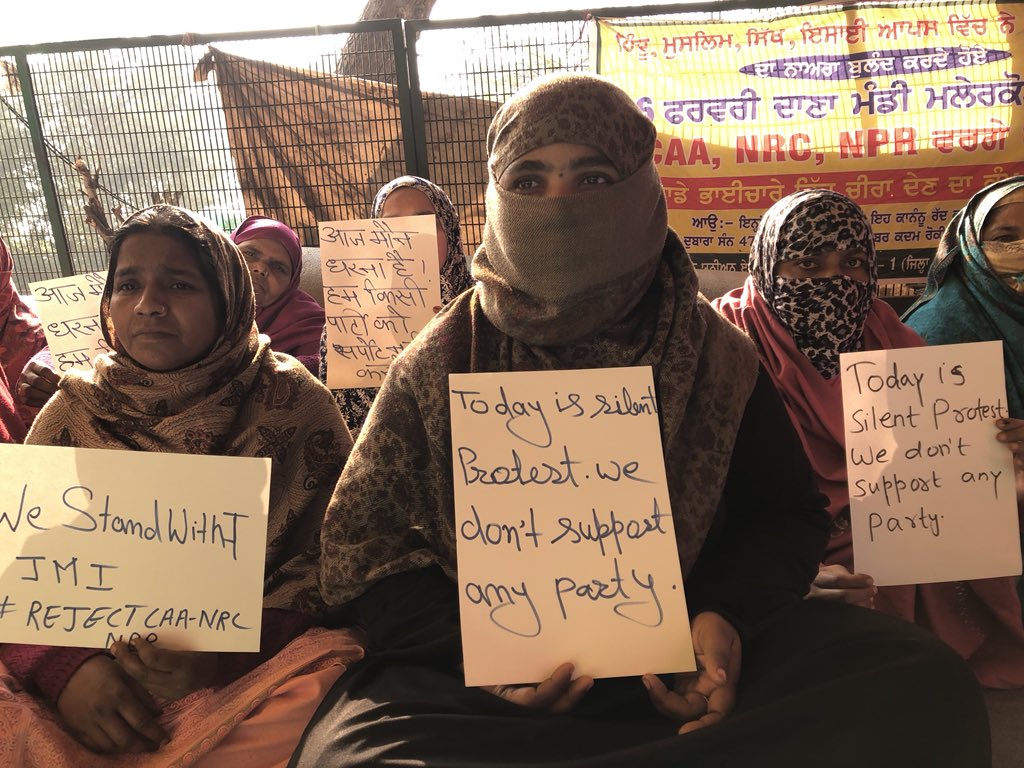 ਹਿੰਦੂ, ਮੁਸਲਿਮ, ਸਿੱਖ, ਇਸਾਈ ਆਪਸ ਵਿੱਚ ਨੇ
ਦਾ ਨਾਅਰਾ ਬੁਲੰਦ ਕਰਦੇ ਹੋਏ
6 ਫਰਵਰੀ ਦਾਣਾ ਮੰਡੀ ਮਲੇਰਕੋ
CAA, NRC, NPR ਵਰਗੇ
ਾਡੇ ਭਾਈਚਾਰੇ ਵਿੱਚ ਚੀਰਾ ਦੇਣ ਦਾ
ਆਉ:- ਇਨ
ਇਹ ਕਾਨੂੰਨ ਰੱਦ
ਦੁਬਾਰਾ ਸੰਨ 47
ਬਰ ਕਦਮ ਰੋਕੋ
- 1 (ਜ਼ਿਲ੍ਹਾ
आज मौन
धरना
हम
आज मौन
धरना है।
हम किसी
पार्टी को
सपोर्ट
We Stand With
JMI
# REJECT CAA-NRC
NPR
Today is silent
Protest. we
don't support
any party.
Today is
Silent Protest.
we don't
support any
party.